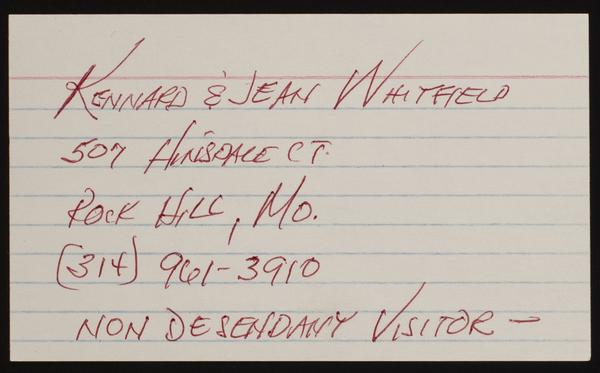 KENNARD & JEAN WHITFIELD
507 HINSDALE CT.
ROCK HILL, MO.
(314) 961-3910
NON DESENDANT VISITOR -